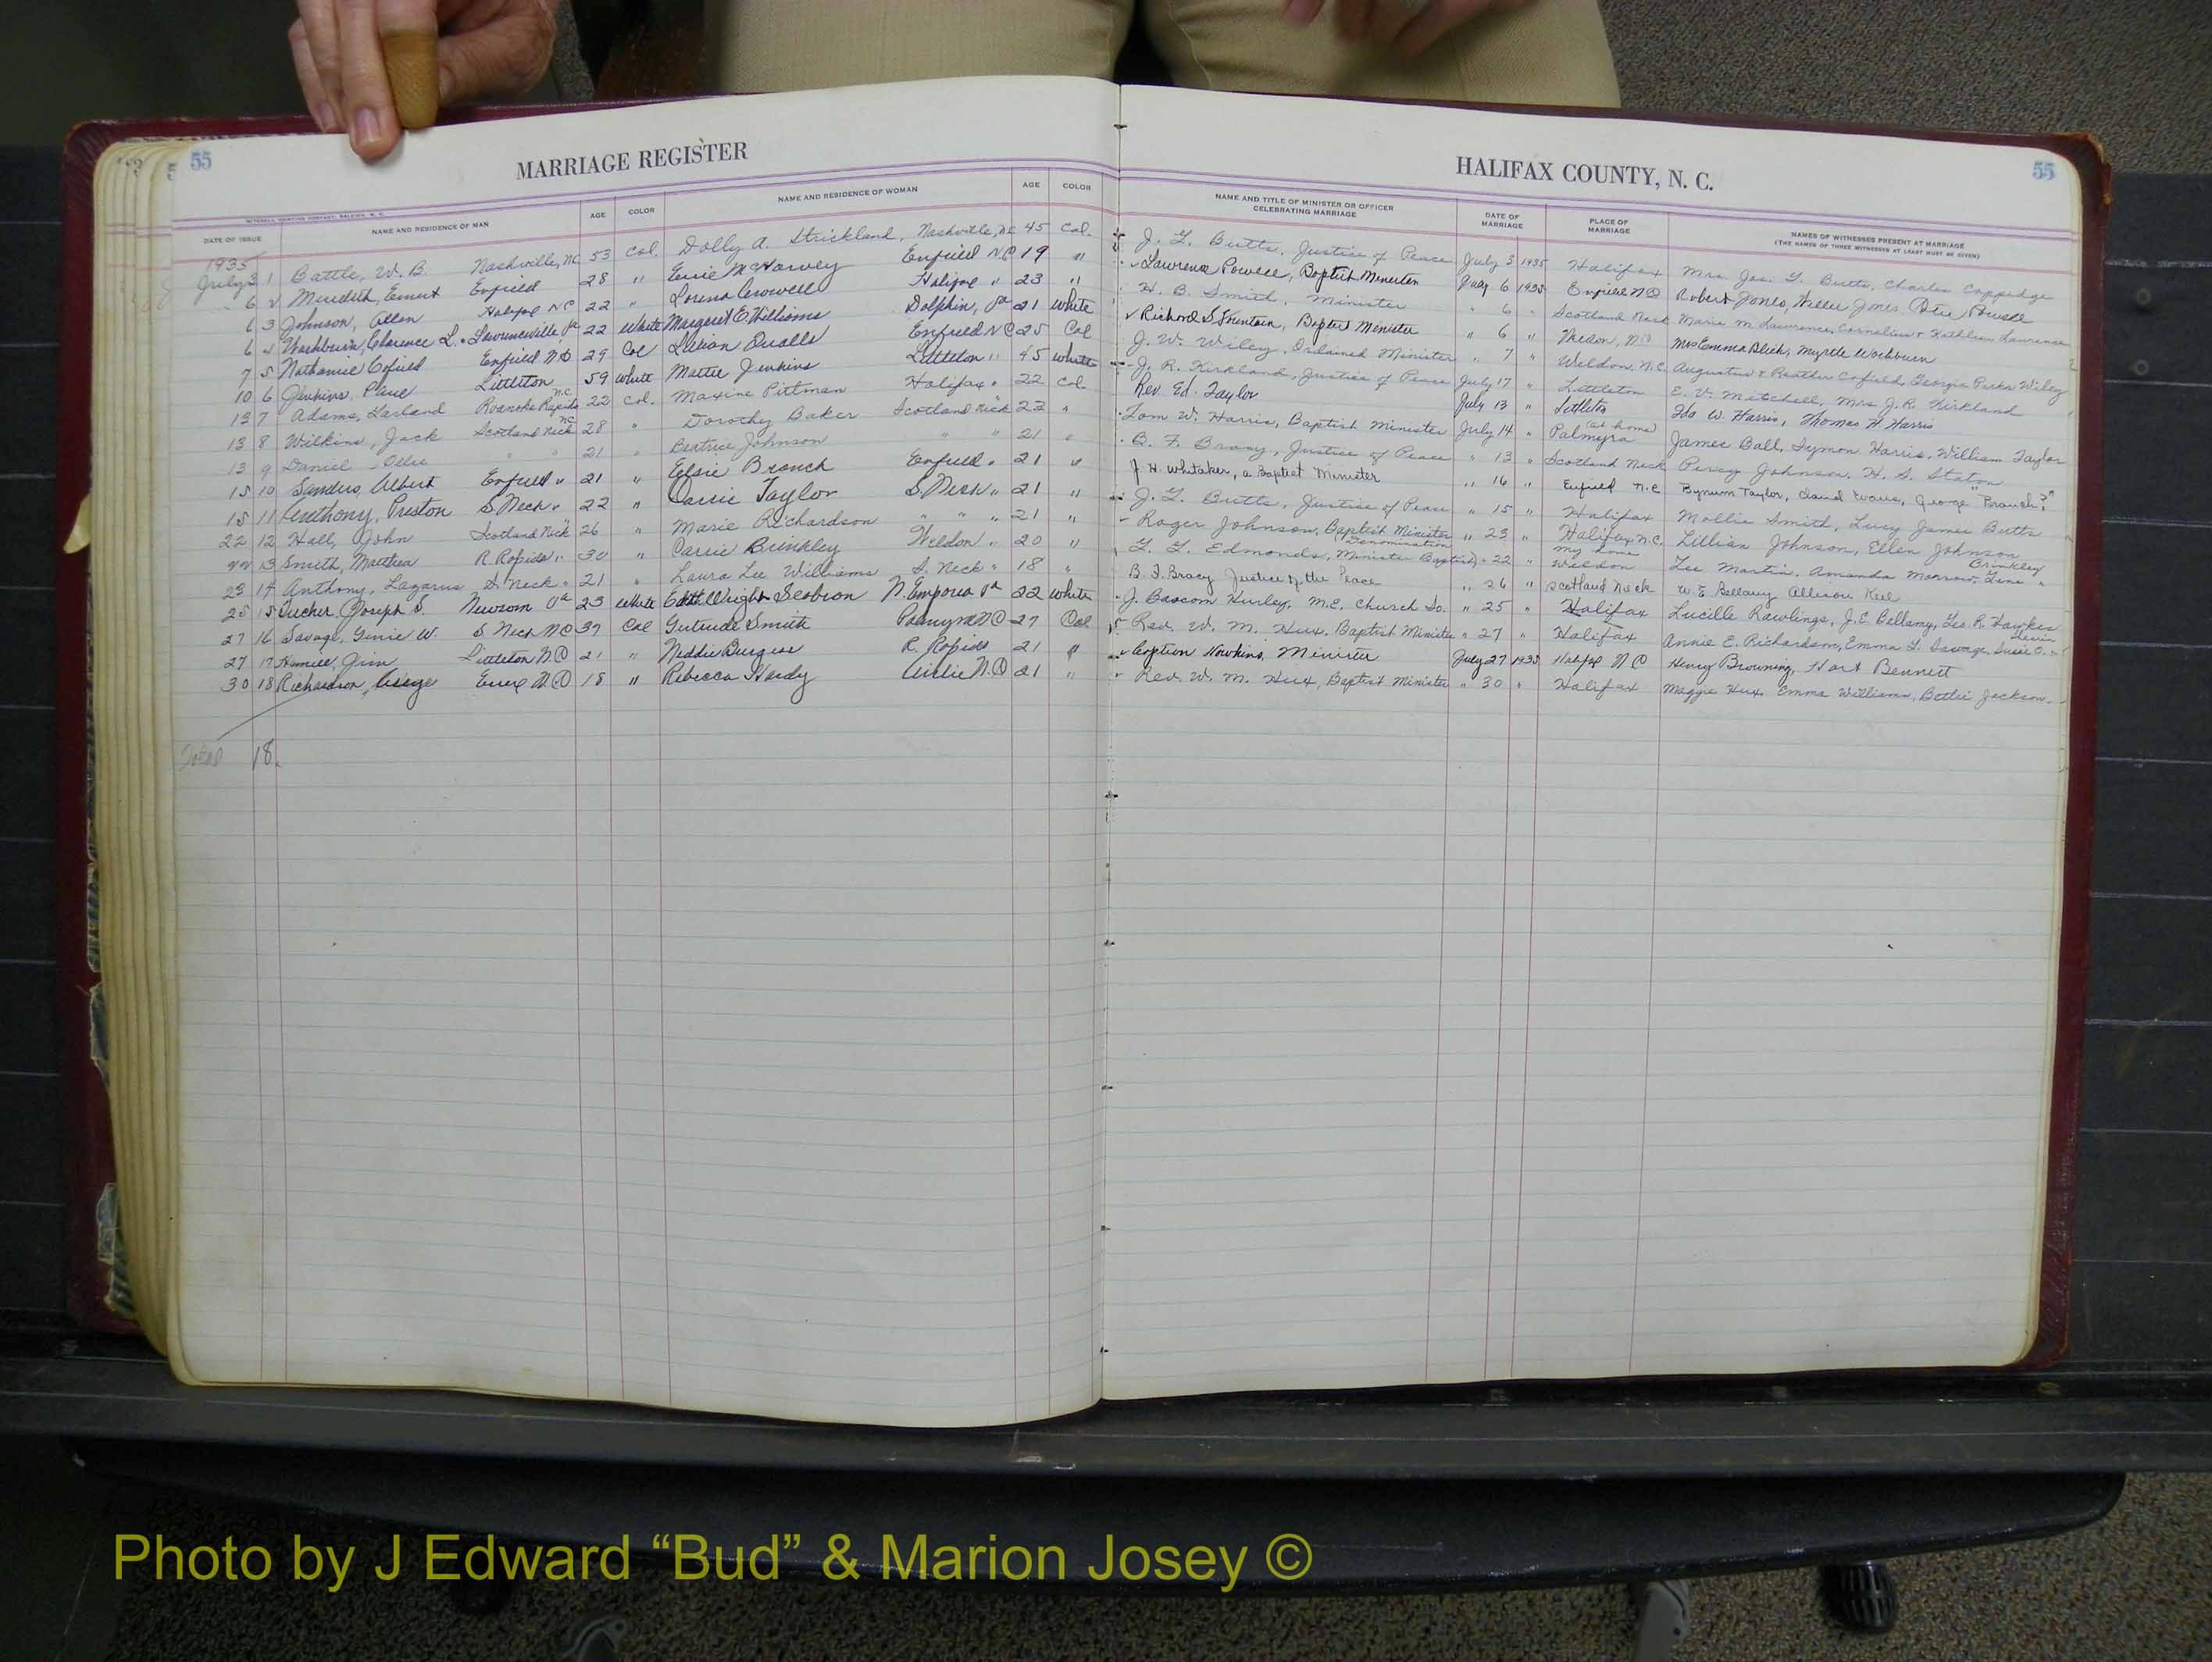 55
MARRIAGE REGISTER
HALIFAX COUNTY, N. C.
55
MITCHELL PRINTING COMPANY, RALEIGH, N. C.
DATE OF ISSUE NAME AND RESIDENCE OF MAN AGE COLOR NAME AND RESIDENCE OF WOMAN AGE COLOR NAME AND TITLE OF MINISTER OR OFFICER CELEBRATING MARRIAGE DATE OF MARRIAGE PLACE OF MARRIAGE NAMES OF WITNESSES PRESENT AT MARRIAGE
(THE NAMES OF THREE WITNESSES AT LEAST MUST BE GIVEN)
1935
July 3 1 Battle, W. B. Nashville, NC 53 Col. Dolly A. Strickland, Nashville, NC 45 Col. J. L. Butts, Justice of Peace July 3 1935 Halifax Mrs. Jas. L. Butts, Charles Coppedge
6 2 Meredith, Ernest Enfield 28 " McHarvey Enfield NC 19 " Lawrence Powell, Baptist Minister July 6 1935 Enfield NC Robert Jones, Jones, Powell
6 3 Johnson, Allen Halifax NC 22 " Lorena Crowell Halifax " 23 " H. B. Smith, Minister " 6 " Scotland Neck Marie M Lawrence, Cornelius & Kathleen Lawrence
6 4 Washburn, Clarence L. Lawrenceville Va 22 White Margaret E. Williams Dolphin, Va 21 White Richard S. Fountain, Baptist Minister " 6 " Weldon, NC Mrs Emma Blick, Myrtle Washburn
7 5 Nathaniel Cofield Enfield NC 29 Col Lillian Qualls Enfield NC 25 Col J. W. Wiley, Ordained Minister " 7 " Weldon, N.C. Augustus & Cofield, Georgia Parks Wiley
10 6 Jenkins, Littleton 59 White Mattie Jenkins Littleton " 45 White J. R. Kirkland, Justice of Peace July 17 " Littleton E. V. Mitchell, Mrs J. R. Kirkland
13 7 Adams, Garland Roanoke Rapids N.C. 22 Col. Maxine Pittman Halifax " 22 Col. Rev. Ed. Taylor July 13 " Littleton Ida W. Harris, Thomas H. Harris
13 8 Wilkins, Jack Scotland Neck NC 28 " Dorothy Baker Scotland Neck 22 " Tom W. Harris, Baptist Minister July 14 " Palmyra (at home) James Ball, Symon Harris, William Taylor
13 9 Daniel Ollie " " 21 " Beatrice Johnson " " 21 " B. F. Bracy, Justice of Peace " 13 " Scotland Neck Percy Johnson, H. S. Staton
15 10 Sanders, Albert Enfield " 21 " Elsie Branch Enfield " 21 " J H. Whitaker, a Baptist Minister " 16 " Enfield N.C Bynum Taylor, David Evans, George "Branch?"
15 11 Anthony, Preston S. Neck " 22 " Carrie Taylor S. Neck " 21 " J. L. Butts, Justice of Peace " 15 " Halifax Mollie Smith, Lucy James Butts
22 12 Hall, John Scotland Neck 26 " Marie Richardson " " " 21 " Roger Johnson, Baptist Minister Denomination " 23 " Halifax N.C. my home Lillian Johnson, Ellen Johnson
22 13 Smith, Matthew R. Rapids " 30 " Carrie Brinkley Weldon " 20 " L. L. Edmonds, Minister Baptist " 22 " Weldon Lee Martin, Amanda Morrow, Brinkley
23 14 Anthony, Lazarus S. Neck " 21 " Laura Lee Williams S. Neck " 18 " B. F. Bracy Justice of the Peace " 26 " Scotland Neck W. E. Bellamy Allison
25 15 Tucker, Joseph S. Newsom Va 23 White Edith Wright N. Emporia Va 22 White J. Bascom Hurley, M.E. Church So. " 25 " Halifax Lucille Rawlings, J.E. Bellamy, Geo. R. Hawkes
27 16 Savage, W. S. Neck NC 37 Col Gertrude Smith Palmyra NC 27 Col Rev. W. M. Hux, Baptist Minister " 27 " Halifax Annie E. Richardson, Emma L. Savage, Susie O.
27 17 Jim Littleton N.C 21 " Burgess R. Rapids 21 " Hawkins, Minister July 27 1935 Halifax N C Henry Browning, Hart Bennett
30 18 Richardson, N.C 18 " Rebecca Hardy Airlie N.C 21 " Rev. W. M. Hux, Baptist Minister " 30 " Halifax Maggie Hux, Emma Williams, Bettie Jackson
Total 18.
Photo by J Edward “Bud” & Marion Josey ©